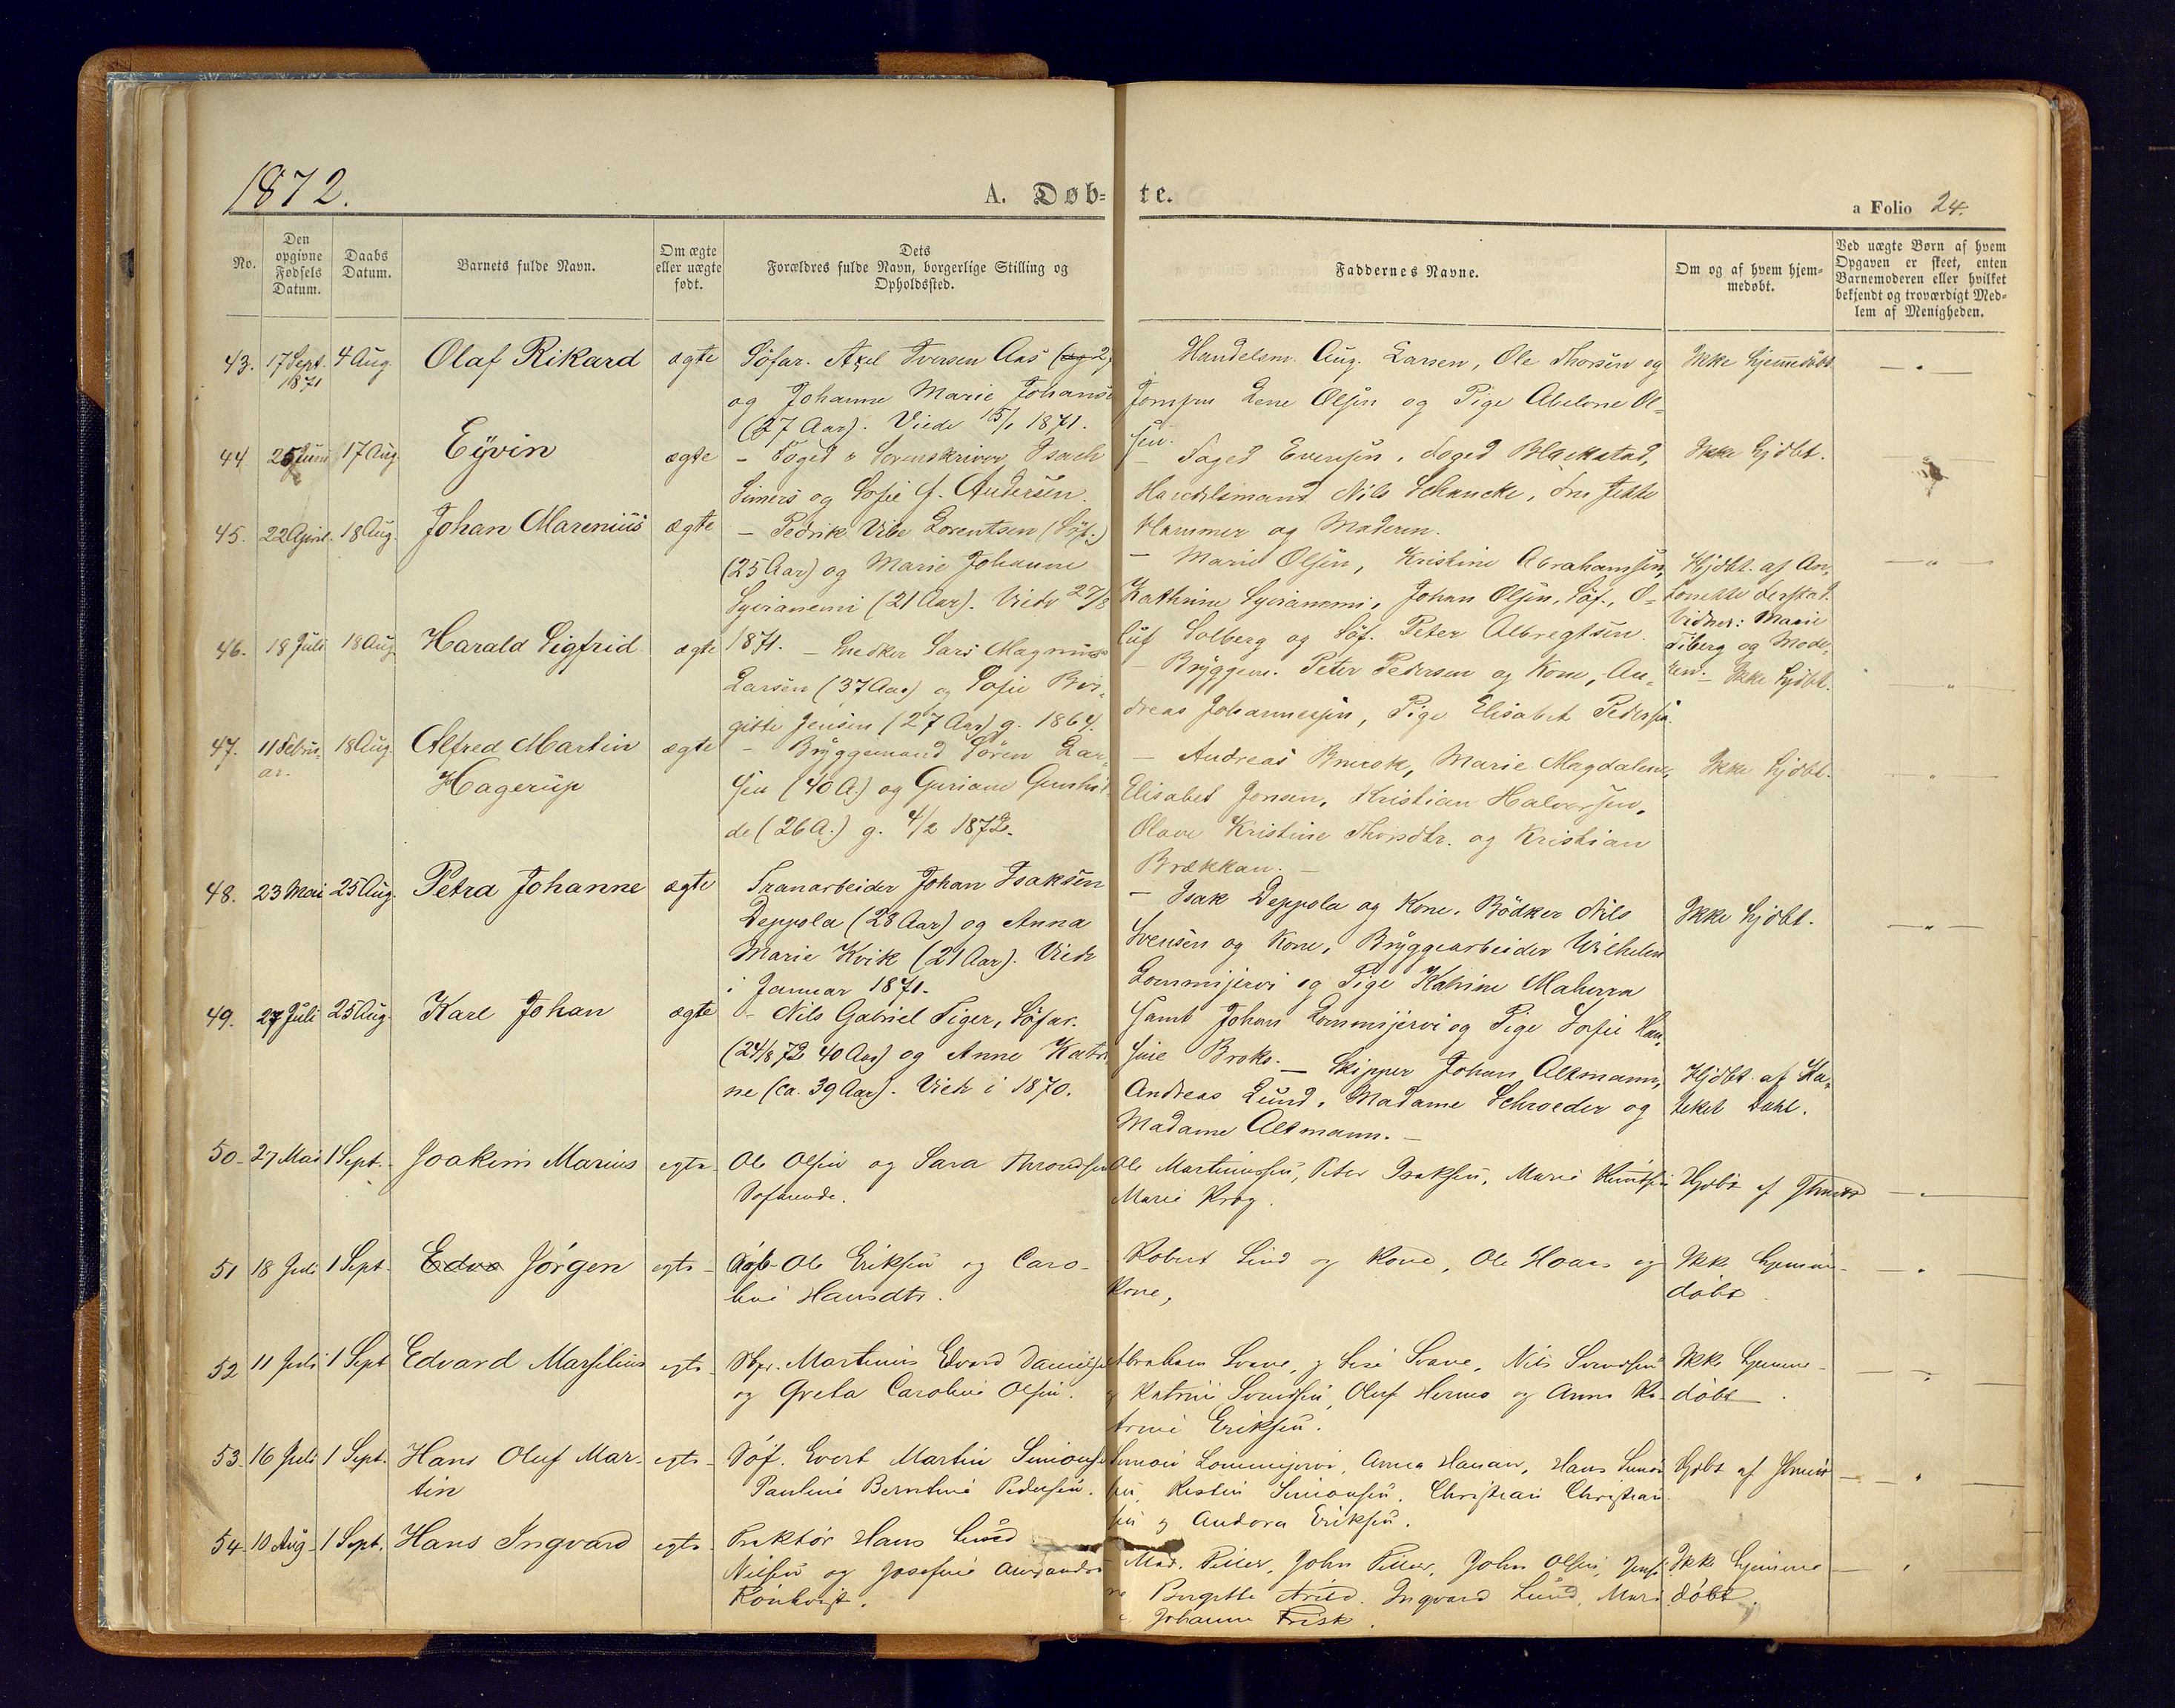 1872.
A. Døb- te.
a Folio 24.
No.
Den opgivne Fødsels Datum.
Daabs Datum.
Barnets fulde Navn.
Om ægte eller uægte født.
Dets Forældres fulde Navn, borgerlige Stilling og Opholdssted.
Faddernes Navne.
Om og af hvem hjemmedøbt.
Ved uægte Børn af hvem Opgaven er skeet, enten Barnemoderen eller hvilket bekjendt og troværdigt Medlem af Menigheden.
43. 17 Sept. 1871 4 Aug. Olaf Rikard ægte
Söfar. Axel Iversen Aas
og Johanne Marie Johans
(27 Aar). Viede 15/1 1871.
Handelsm. Aug. Larsen, Ole Thorsen og
Jomfru Lene Olsen og Pige Abelone Ol-
sen.
Ikke hjemmedöbt
44 25 Juni 17 Aug Eÿvin ægte
– Foged & Sorenskriver Isach
Simers og Sofie f. Andersen.
– Foged Evensen, Foged Blackstad,
Handelsmand Nils Schancke, Fru Jette
Hammer og Moderen.
Ikke hjdbt.
45. 22 April. 18 Aug. Johan Marenius ægte
– Pedrik Vibe Lorentsen (Söf.)
(25 Aar) og Marie Johanne
Syvianemi (21 Aar). Viede 27/8
1871.
– Marie Olsen, Kristine Abrahamsen,
Kathrine Syvianemi, Johan Olsen, Söf., O-
luf Solberg og Söf. Peter Albregtsen.
Hjdbt. af An,
Vidner: Marie
Tiberg og Mode,
ren.
46. 18 Juli 18 Aug Harald Sigfrid ægte
– Snedker Lars Magnus
Larsen (37 Aar) og Sofie Bir-
gitte Jensen (27 Aar) g. 1864.
– Brÿggem. Peter Pedersen og Kone, An-
dreas Johannesen, Pige Elisabet Pedersen
Ikke hjdbt.
47. 11 Febru-
ar. 18 Aug. Alfred Martin
Hagerup ægte
– Brÿggemand Sören Lar,
sen (40 A.) og Guriane Gunhil
de (26 A.) g. 4/2 1872.
– Andreas Brurok, Marie Magdalene,
Elisabet Jonsen, Kristian Halvorsen,
Olave Kristine Thorsdtr. og Kristian
Brækkan. –
Ikke hjdbt.
48. 23 Mai 25 Aug. Petra Johanne ægte
Tranarbeider Johan Isaksen
Deppola (28 Aar) og Anna
Marie Kvik (21 Aar). Viede
i Januar 1871.
– Isak Deppola og Kone, Bödker Nils
Svensen og Kone, Brÿggearbeider Wilhelm
Lommijervi og Pige Katrine Maherra
samt Johan Lommijervi og Pige Sofie Han,
sine Broks.
Ikke hjdbt.
49. 27 Juli 25 Aug Karl Johan ægte
– Nils Gabriel Figer, Söfar.
(24/8 72 40 Aar) og Anne Katri
ne (ca. 39 Aar). Viede i 1870.
– Skipper Johan Altmann,
Andreas Lund, Madame Schroeder og
Madame Altmann. –
Hjdbt. af Ka-
teket Dahl.
50 27 Mai 1 Sept. Joakim Marius egte
Ole Olsen og Sara Throndsen
Sofarende.
Ole Martinussen, Peter Isaksen, Marie Knudsen
Marie Krog.
Hjdbt af
51 18 Juli 1 Sept. Edva Jörgen egte
Ole Eriksen og Caro-
line Hansdtr.
Robert Lind og Kone, Ole Hoaas og
Kone,
Ikke hjemme-
döbt
52 11 Juli 1 Sept Edvard Marselius egte
Martinus Edvard Danielsen
og Greta Caroline Olsen.
Abraham Svane, og Lise Svane, Nils Svendsen
og Katrine Svendsen, Oluf Hermo og Anna Ka-
trine Eriksen.
Ikke hjemme-
döbt.
53 16 Juli 1 Sept. Hans Oluf Mar-
tin egte
Söf. Evert Martin Simonsen
Pauline Berntine Pedersen.
Simon Lommijervi, Anna Hanan, Hans Simon
sen, Kristin Simonsen, Christian Christian
sen og Andora Eriksen.
Hjdbt af
54 10 Aug 1 Sept. Hans Ingvard egte
Traktör Hans Lund
Nilsen og Josefine
Rönkvist.
Mad. Piller, John Piller, John Olsen,
Birgitte Arild. Ingvard Lund, Mari
Johanne Frisk.
Ikke hjemme
döbt.